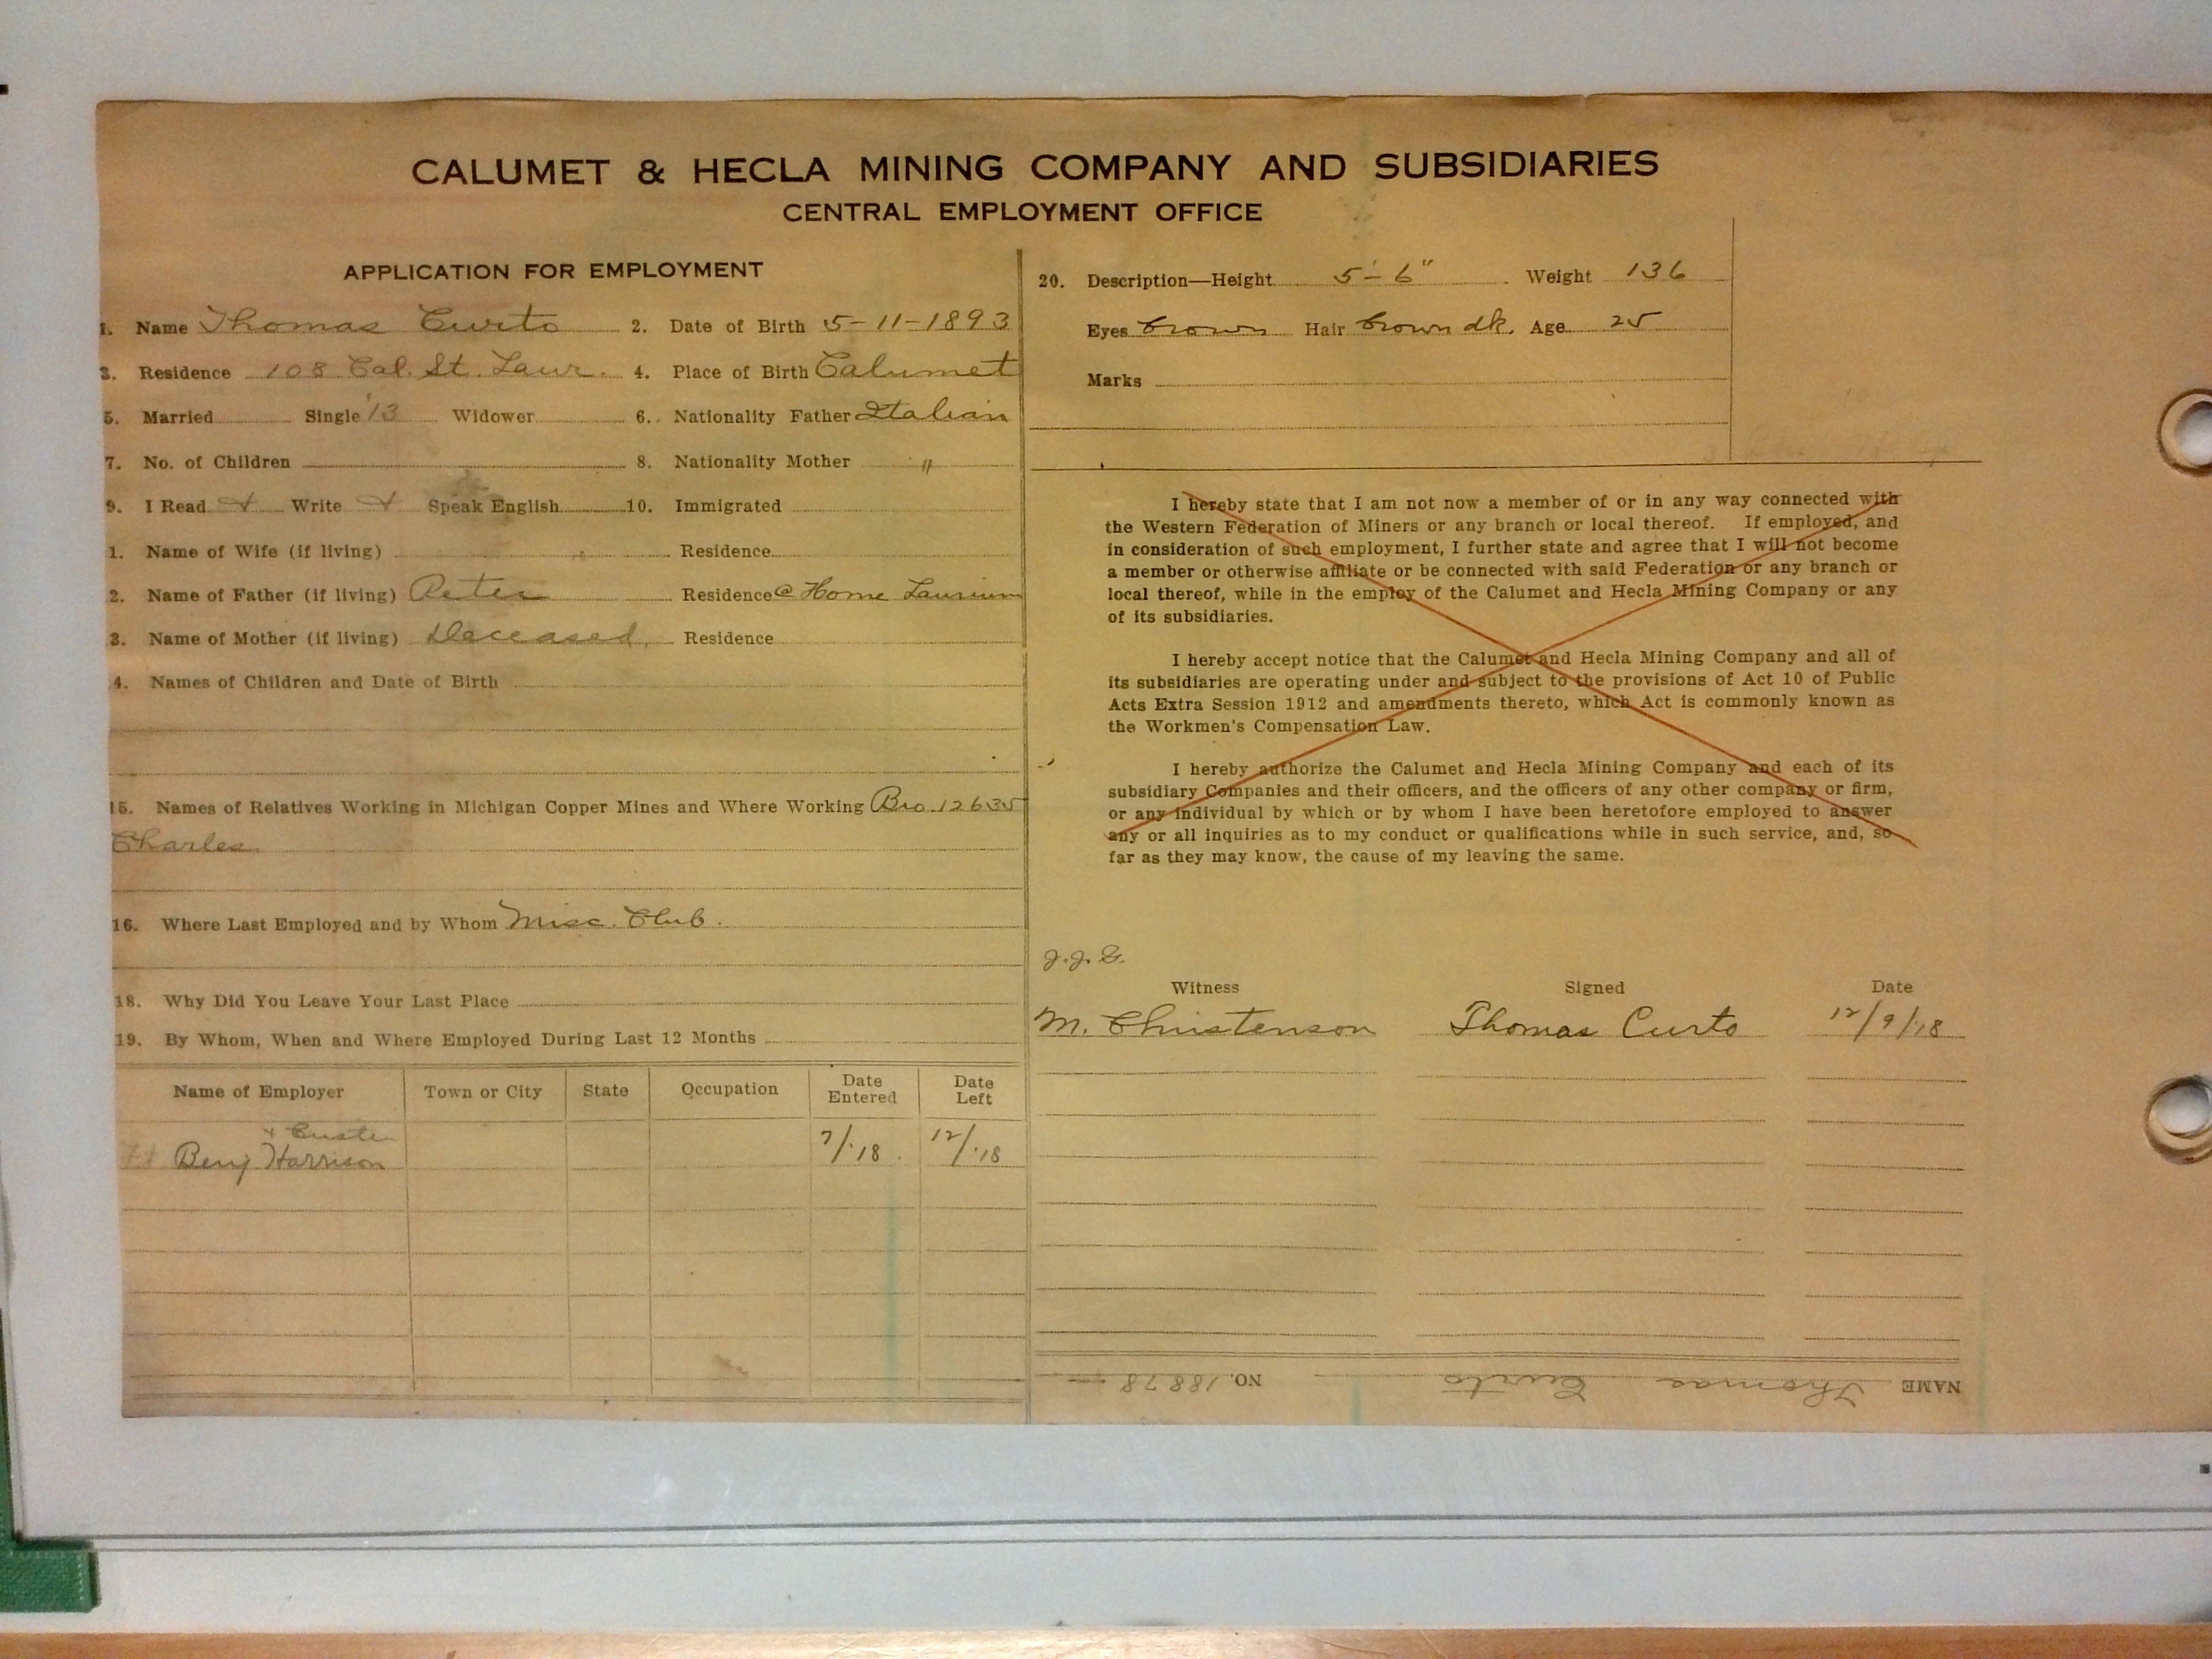 CALUMET & HECLA MINING COMPANY AND SUBSIDIARIES
CENTRAL EMPLOYMENT OFFICE
APPLICATION FOR EMPLOYMENT
1. Name Thomas Curto 2. Date of Birth 5-11-1893
3. Residence 108 Cal. St. Laur. 4. Place of Birth Calumet
5. Married Single '13 Widower 6. Nationality Father Italian
7. No. of Children 8. Nationality Mother "
9. I Read Write Speak English 10. Immigrated
1. Name of Wife (if living) Residence
2. Name of Father (if living) Peter Residence @ Home Laurium
3. Name of Mother (if living) Deceased. Residence
4. Names of Children and Date of Birth
15. Names of Relatives Working in Michigan Copper Mines and Where Working Bro. 12635
Charles.
16. Where Last Employed and by Whom Misc. Club.
18. Why Did You Leave Your Last Place
19. By Whom, When and Where Employed During Last 12 Months
Name of Employer Town or City State Occupation Date Entered Date Left
+ Custer
Benj Harrison 7/'18. 12/'18
20. Description—Height 5'-6" Weight 136
Eyes brown Hair brown dk. Age 25
Marks
I hereby state that I am not now a member of or in any way connected with
the Western Federation of Miners or any branch or local thereof. If employed, and
in consideration of such employment, I further state and agree that I will not become
a member or otherwise affiliate or be connected with said Federation or any branch or
local thereof, while in the employ of the Calumet and Hecla Mining Company or any
of its subsidiaries.
I hereby accept notice that the Calumet and Hecla Mining Company and all of
its subsidiaries are operating under and subject to the provisions of Act 10 of Public
Acts Extra Session 1912 and amendments thereto, which Act is commonly known as
the Workmen's Compensation Law.
I hereby authorize the Calumet and Hecla Mining Company and each of its
subsidiary Companies and their officers, and the officers of any other company or firm,
or any individual by which or by whom I have been heretofore employed to answer
any or all inquiries as to my conduct or qualifications while in such service, and, so
far as they may know, the cause of my leaving the same.
J.J.G.
Witness Signed Date
M. Christenson Thomas Curto 12/9/18
NAME Thomas Curto NO. 18878